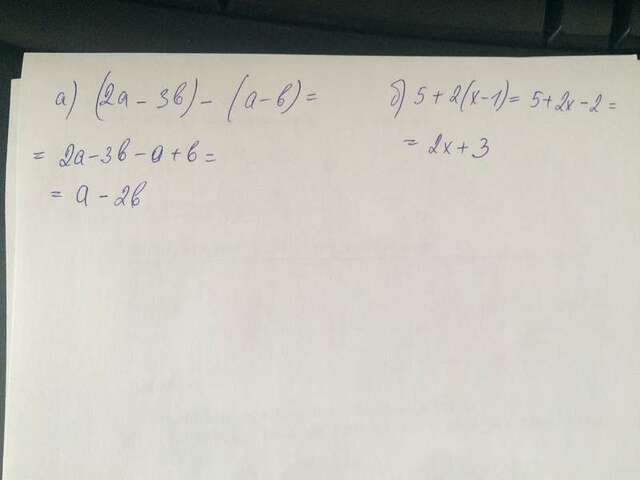 а) (2a - 3b) - (a - b) =
= 2a - 3b - a + b =
= a - 2b
б) 5 + 2(x - 1) = 5 + 2x - 2 =
= 2x + 3